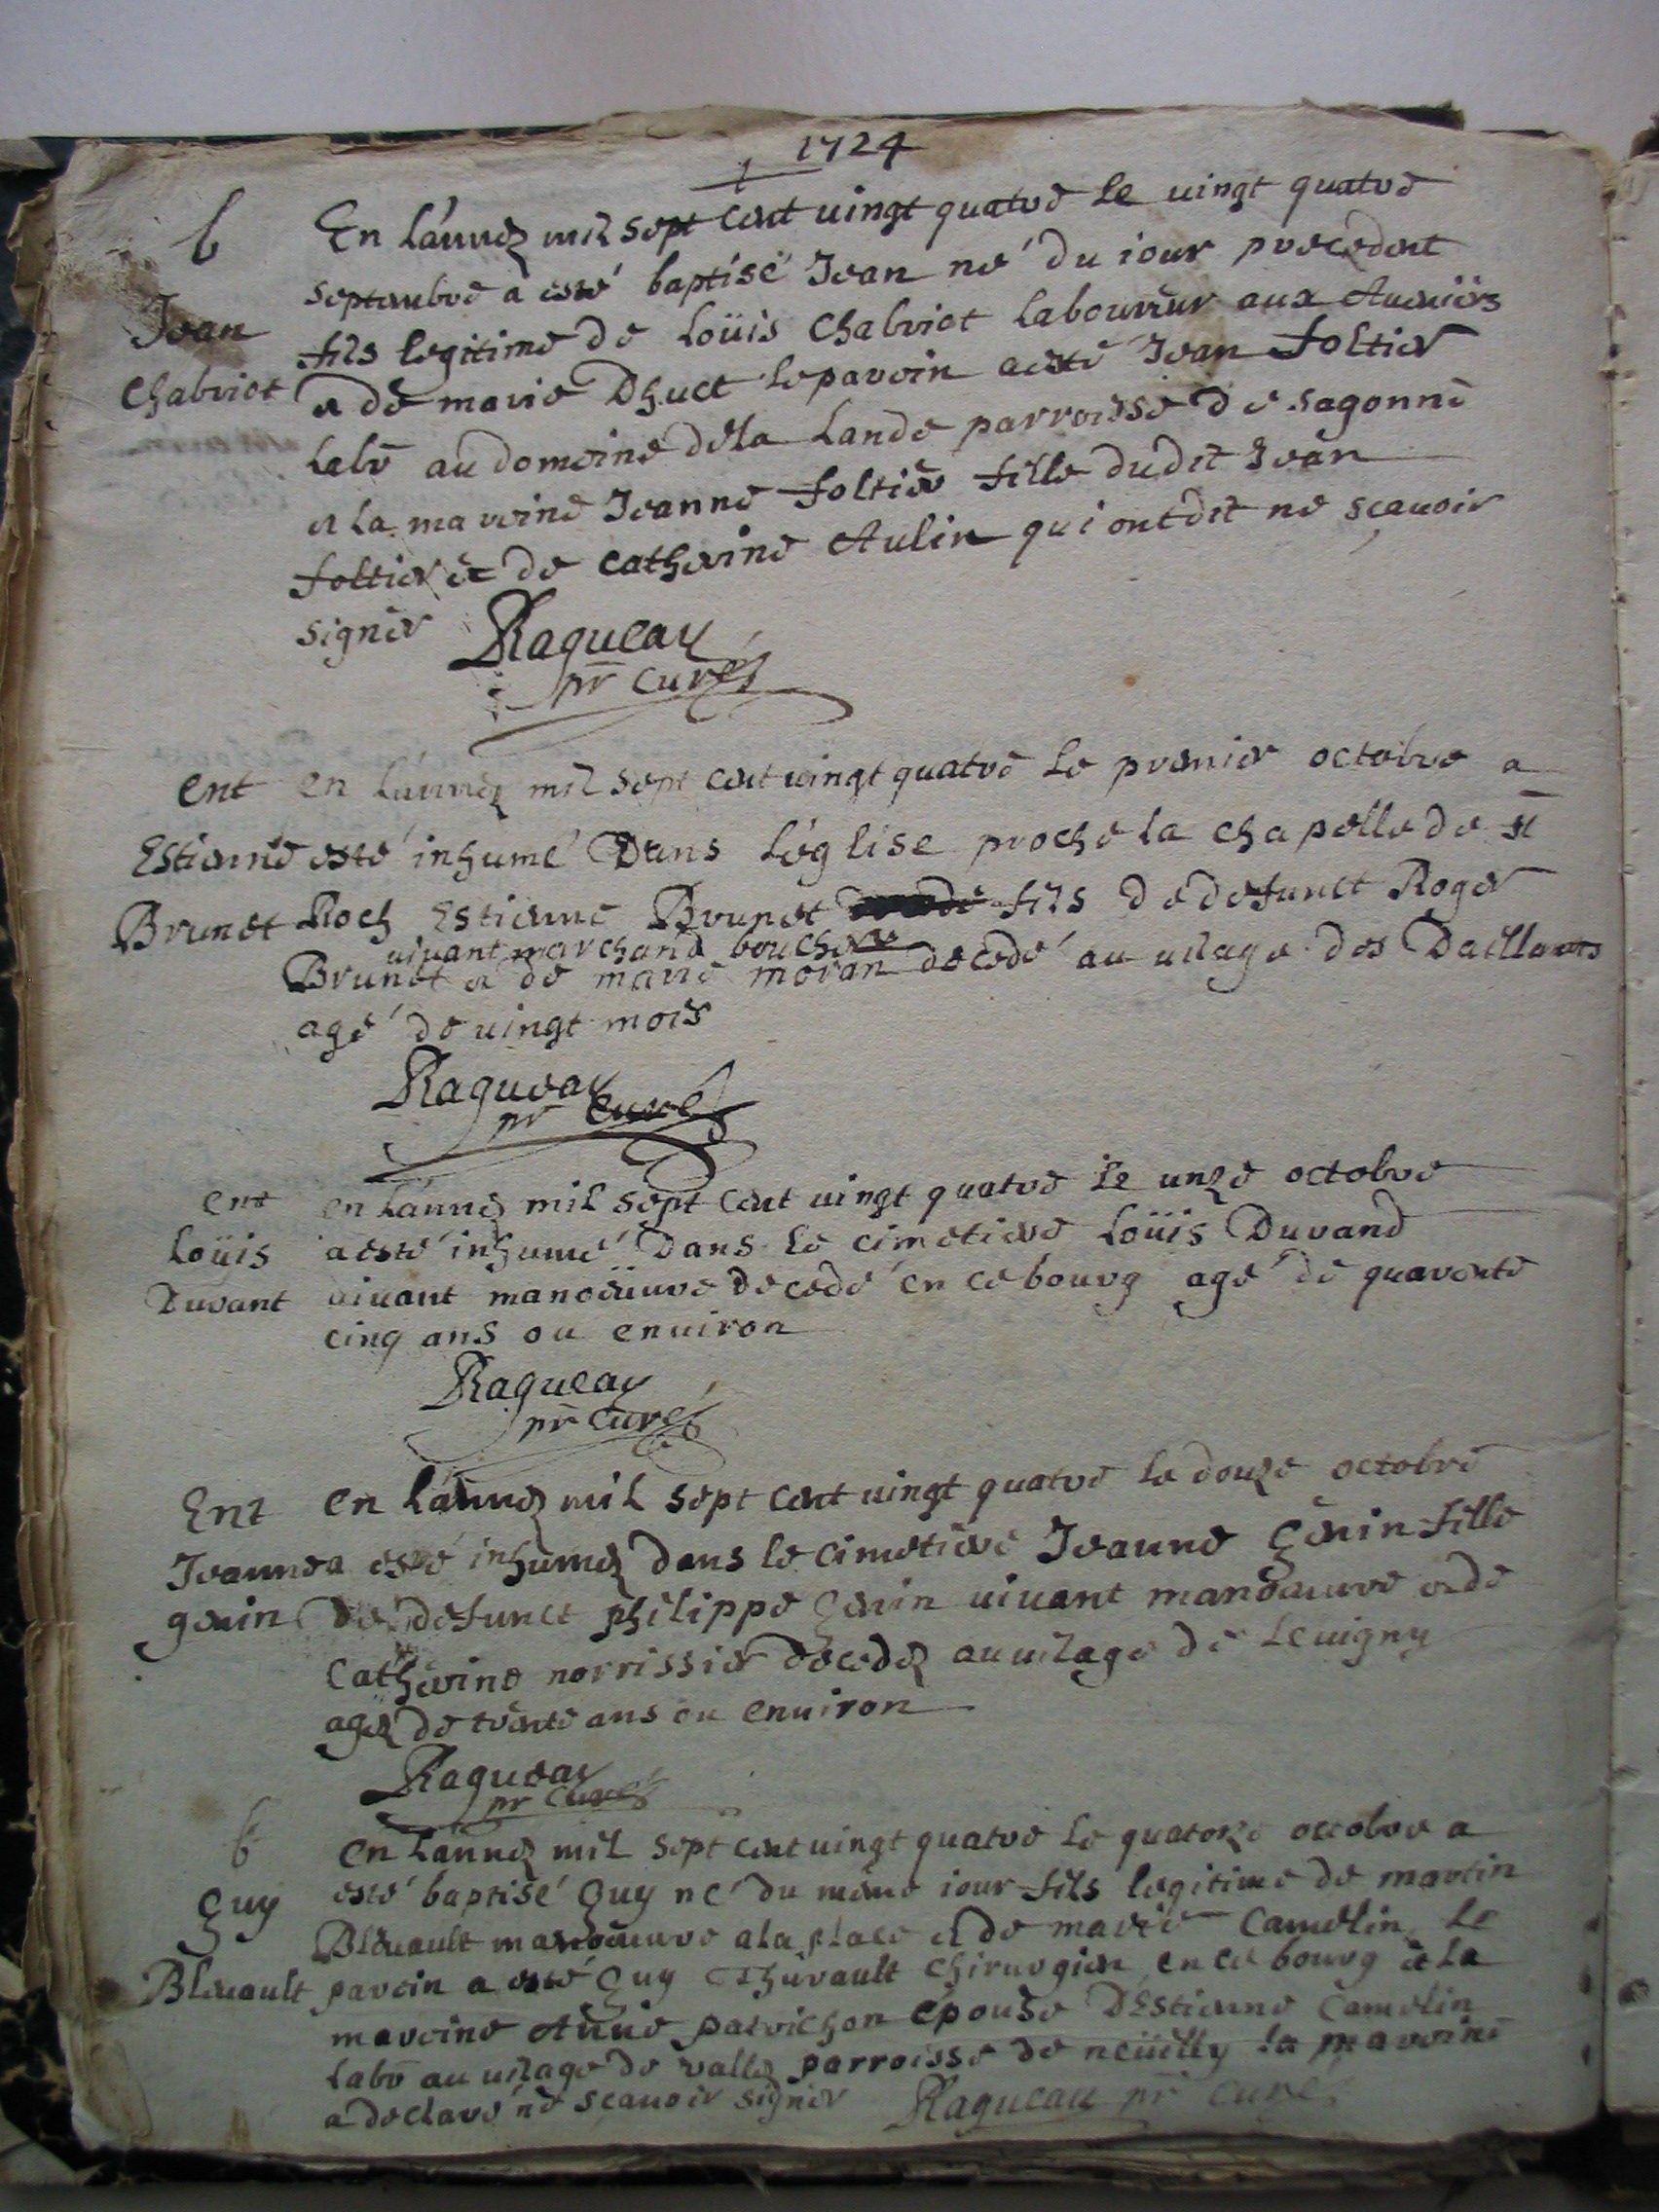 1724
b
En l'année mil sept cent vingt quatre le vingt quatre
septembre a esté baptisé Jean né du iour precedent
Jean
fils legitime de Loüis Chabriot laboureur aux
Chabriot
et de marie Dhuet le parein a esté Jean foltier
labr au domeine de la Lande parroisse de sagonne
et la mareine Jeanne foltier fille dudit Jean
foltier et de catherine Aulin qui ont dit ne sçauoir
signer Ragueau
pr curé
ent en l'année mil sept cent vingt quatre le premier octobre a
Estienne esté inhumé Dans l'église proche la chapelle de st
Brunet Roch Estienne Brunet fils de defunct Roger
uiuant marchand boucher
Brunet et de marie moran decedé au uilage des Daillants
agé de uingt mois
Ragueau
pr curé
ent en l'année mil sept cent uingt quatre le unze octobre
Loüis a esté inhumé Dans le cimetiere Loüis Durand
Durant uiuant manoeuure decedé en ce bourg agé de quarente
cinq ans ou enuiron
Ragueau
pr curé
Ent en l'année mil sept cent uingt quatre le douze octobre
Jeanne a esté inhumée dans le cimetiere Jeanne genin fille
genin de defunct philippe genin uiuant manoeuure et de
Catherine norrissier decedée au uilage de Leuigny
agée de trente ans ou enuiron
Ragueau
pr curé
b en l'année mil sept cent uingt quatre le quatorze octobre a
guy esté baptisé guy né du même iour fils legitime de martin
Bleuault manoeuure a la place et de marie Camelin le
Bleuault parein a esté guy Thurault chirurgien en ce bourg et la
mareine Anne patrichon épouse D'Estienne Camelin
labr au uilage de vallée parroisse de neüilly la mareine
a declaré ne scauoir signer Ragueau pr curé